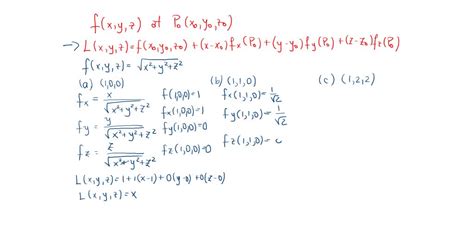 f(x,y,z) at P₀(x₀,y₀,z₀)
→ L(x,y,z)=f(x₀,y₀,z₀)+(x-x₀)fx(P₀)+(y-y₀)fy(P₀)+(z-z₀)fz(P₀)
f(x,y,z)=√(x²+y²+z²)
(a) (1,0,0) (b) (1,1,0) (c) (1,2,2)
fx = x/√(x²+y²+z²) f(1,0,0)=1 fx(1,1,0)=1/√2
fx(1,0,0)=1
fy = y/√(x²+y²+z²) fy(1,0,0)=0 fy(1,1,0)=1/√2
fz = z/√(x²+y²+z²) fz(1,0,0)=0 fz(1,1,0)=
L(x,y,z)=1+1(x-1)+0(y-0)+0(z-0)
L(x,y,z)=x